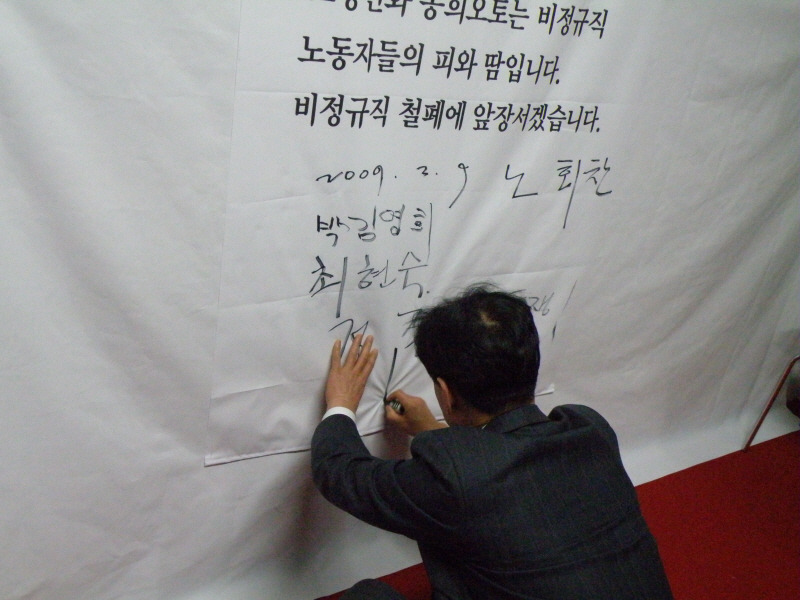 동희오토는 비정규직
노동자들의 피와 땀입니다.
비정규직 철폐에 앞장서겠습니다.
2009. 3. 9 노회찬
박김영희
최현숙.